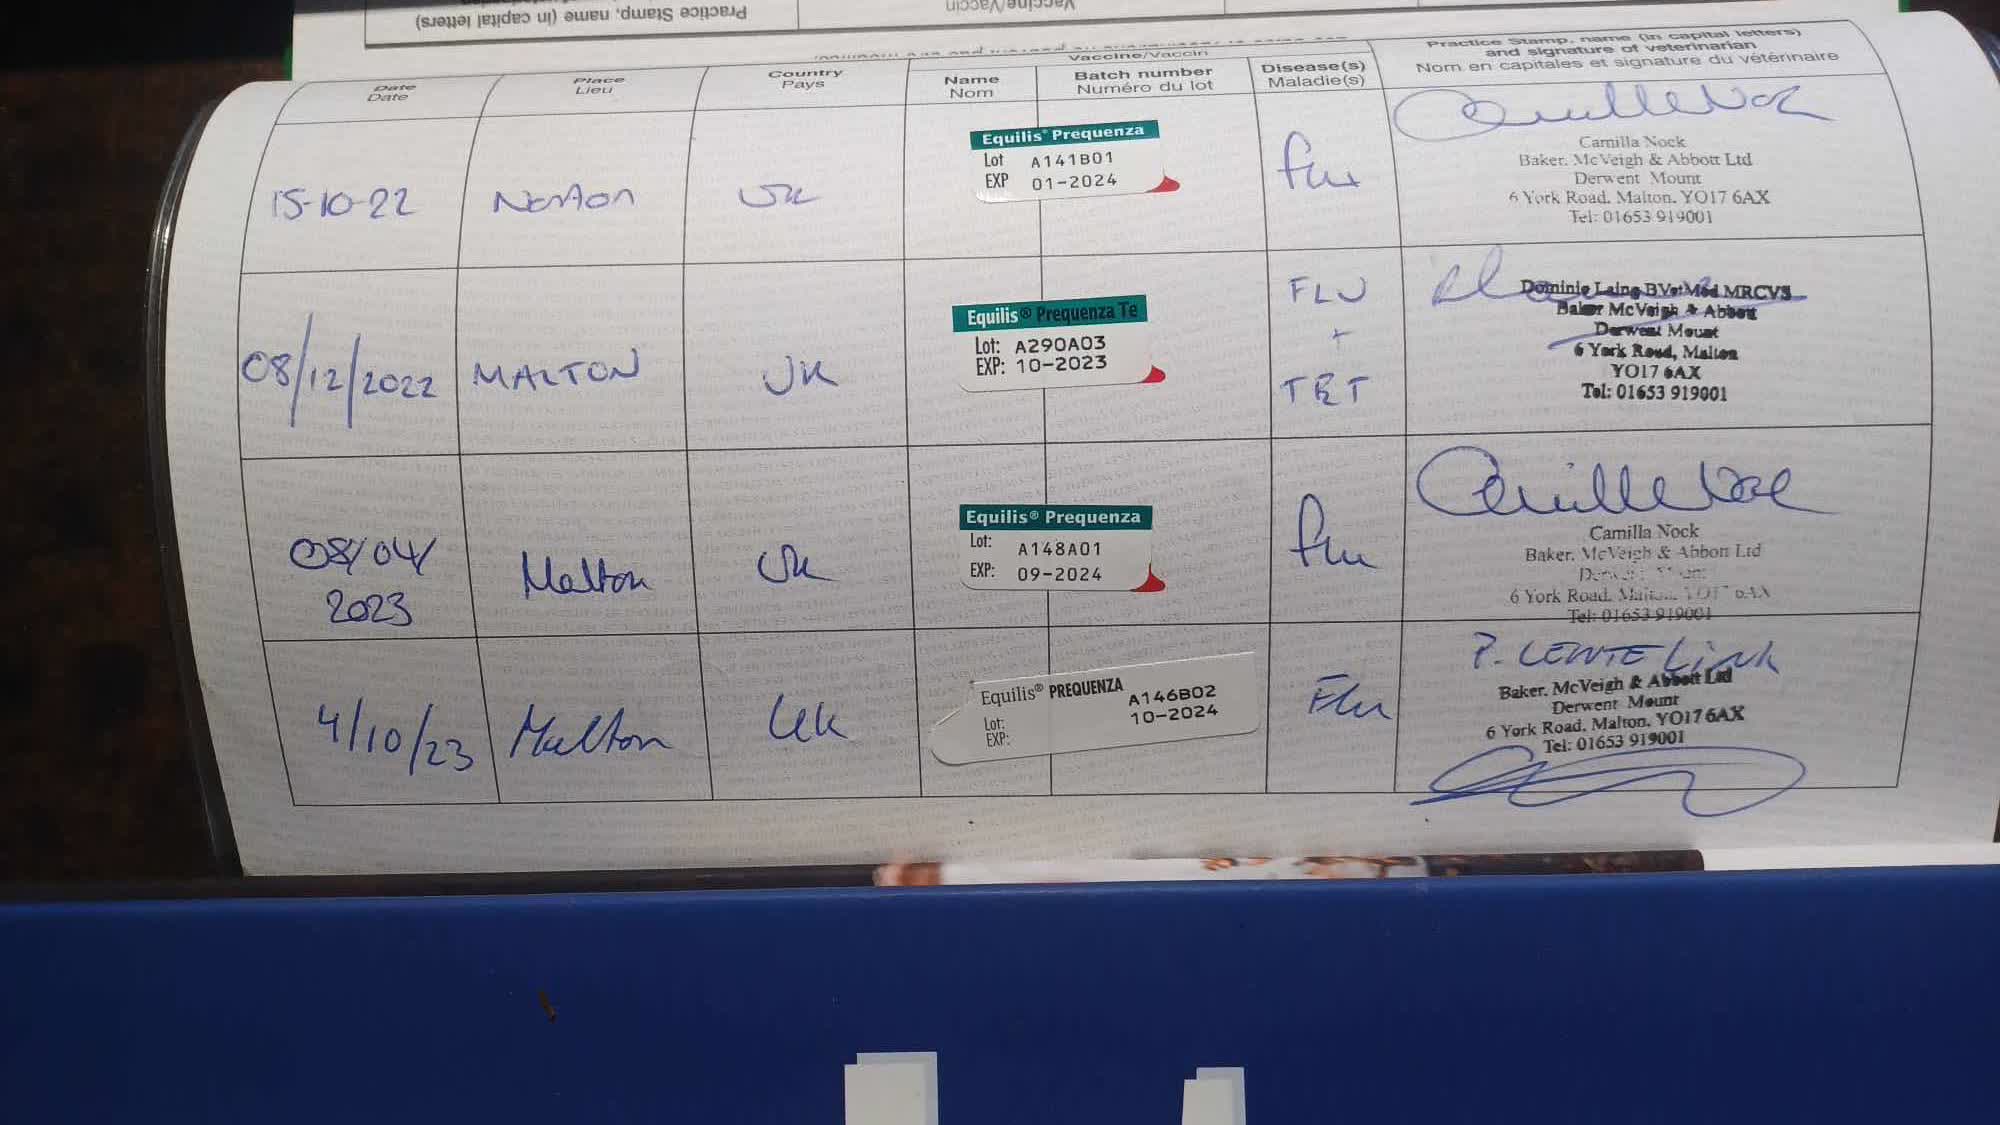 Practice Stamp, name (in capital letters)
Vaccine/Vaccin
Date
Date
Place
Lieu
Country
Pays
Vaccine/Vaccin
Name
Nom
Batch number
Numéro du lot
Disease(s)
Maladie(s)
Practice Stamp, name (in capital letters)
and signature of veterinarian
Nom en capitales et signature du vétérinaire
15-10-22
Norton
UK
Equilis® Prequenza
Lot A141B01
EXP 01-2024
flu
Camilla Nock
Baker, McVeigh & Abbott Ltd
Derwent Mount
6 York Road, Malton, YO17 6AX
Tel: 01653 919001
08/12/2022
MALTON
UK
Equilis® Prequenza Te
Lot: A290A03
EXP: 10-2023
FLU
+
TET
Dominie Laing BVetMed MRCVS
Baker McVeigh & Abbott
Derwent Mount
6 York Road, Malton
YO17 6AX
Tel: 01653 919001
08/04/
2023
Malton
UK
Equilis® Prequenza
Lot: A148A01
EXP: 09-2024
flu
Camilla Nock
Baker, McVeigh & Abbott Ltd
Derwent Mount
6 York Road, Malton, YO17 6AX
Tel: 01653 919001
4/10/23
Malton
UK
Equilis® PREQUENZA
Lot: A146B02
EXP: 10-2024
Flu
Baker, McVeigh & Abbott Ltd
Derwent Mount
6 York Road, Malton, YO17 6AX
Tel: 01653 919001